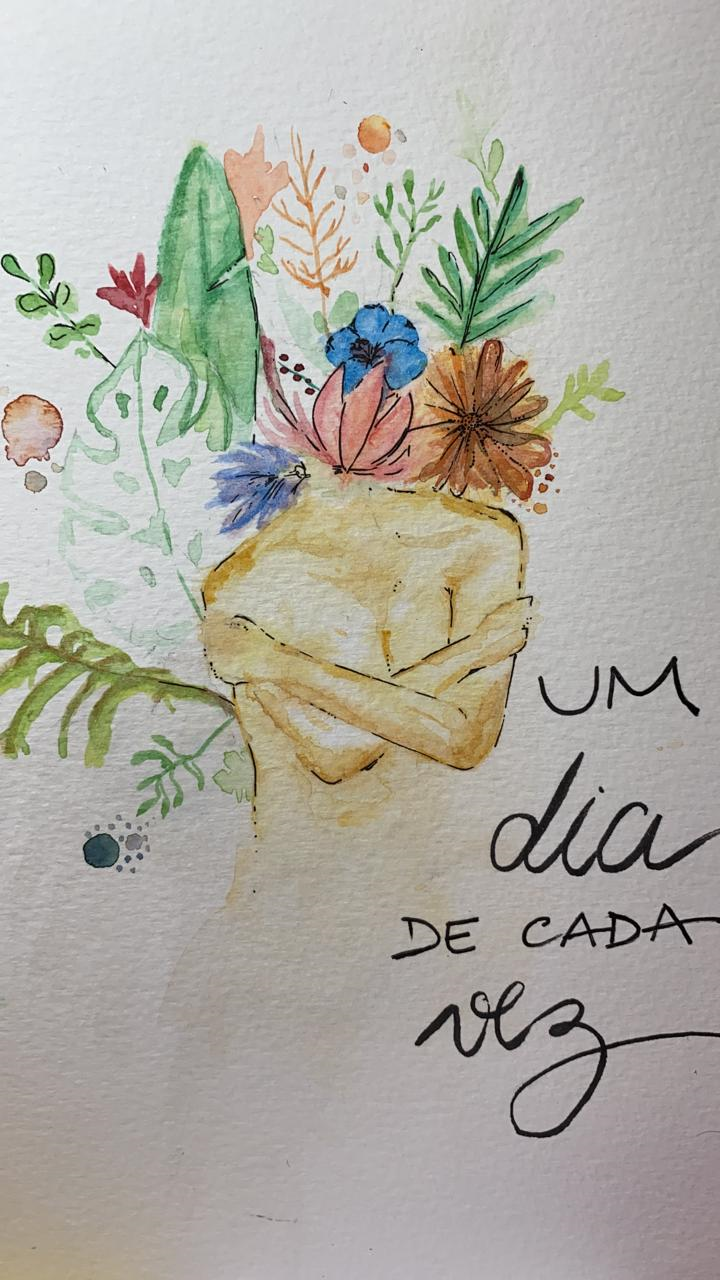 UM
dia
DE CADA
vez